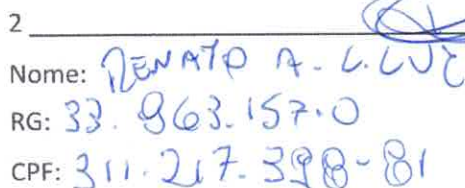 2
Nome: RENATO A. L. LUZ
RG: 33.963.157.0
CPF: 311.217.398-81